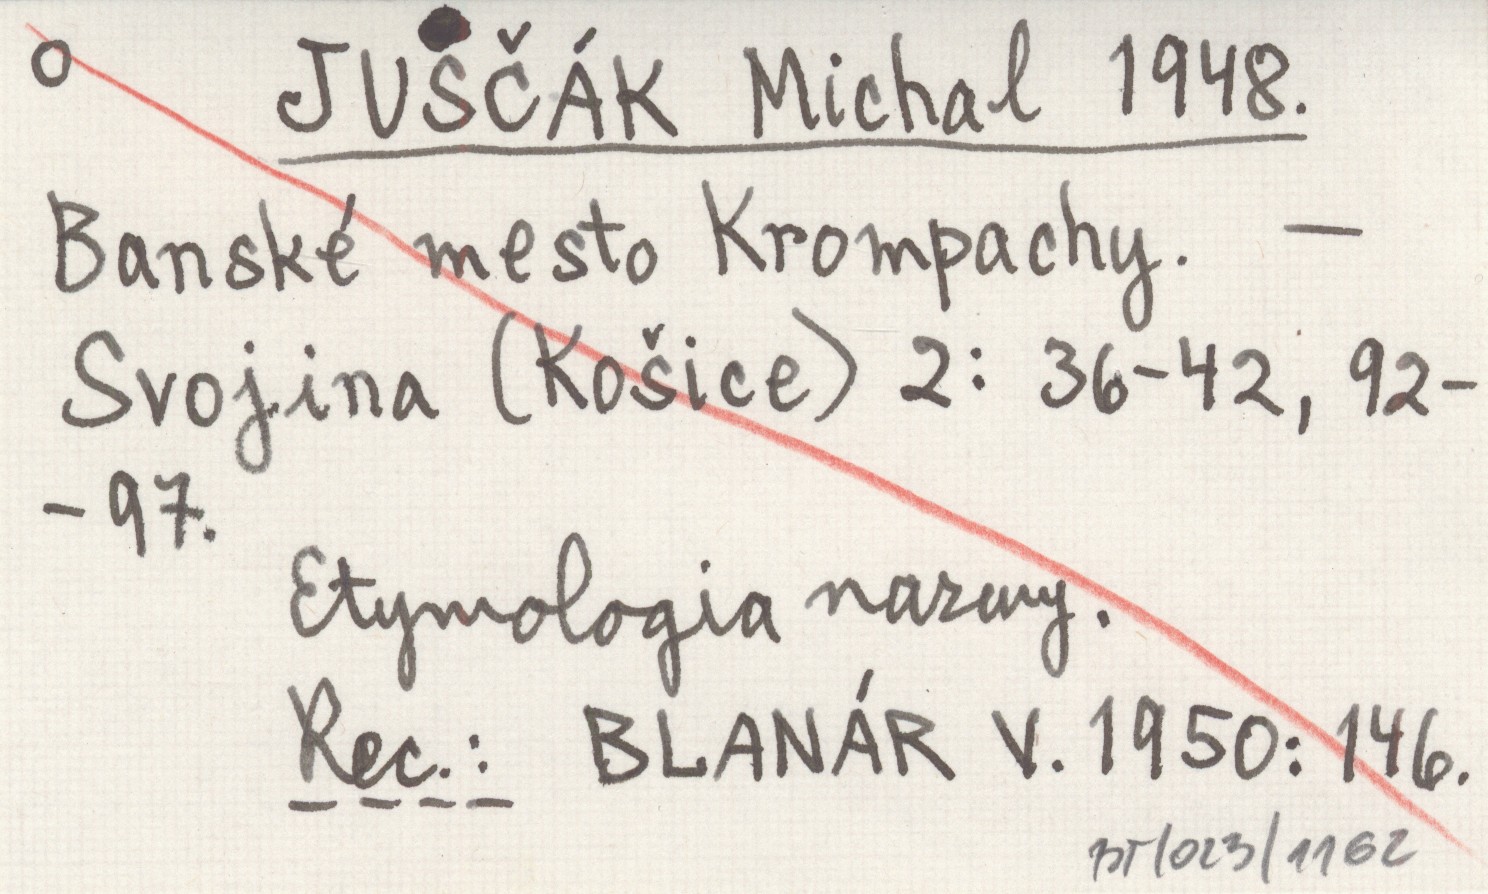 O JUSČÁK Michal 1948.
Banské mesto Krompachy. —
Svojina (Košice) 2: 36-42, 92-
-97.
Etymologia nazwy.
Rec.: BLANÁR V. 1950: 146.
BT/023/1162